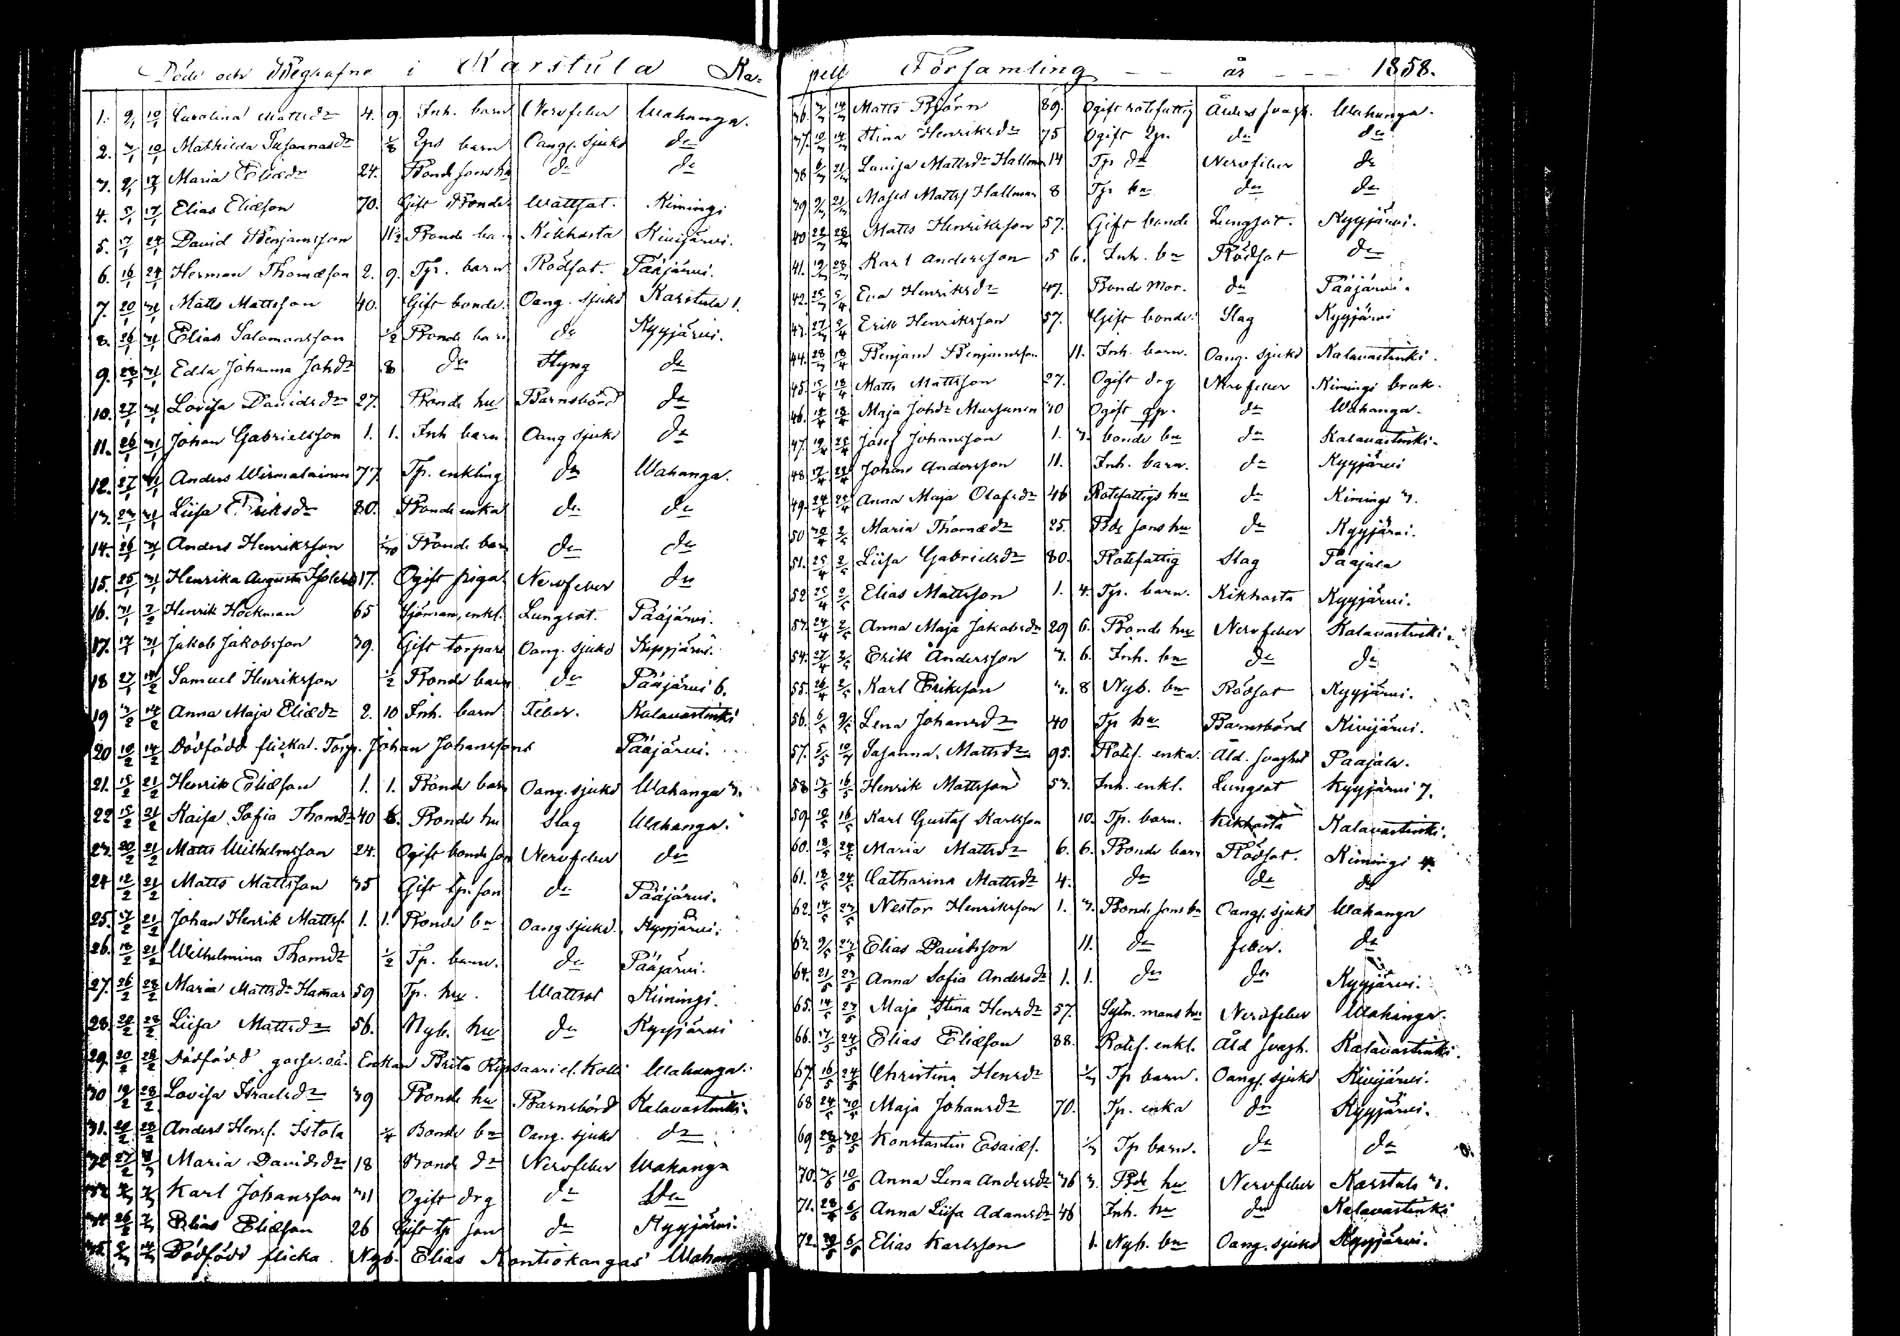 Döde och Begrafne i Karstula Ka-
1. 9/1 10/1 Carolina Mattsdr 4. 9. Inh. barn Nervfeber Wahanga.
2. 10/1 Mathilda Susannasdr 1/8 Qps barn Oang. sjukd dr
3. 17/1 Maria Eliædr 24. Bonde sons hu dr dr
4. 5/1 17/1 Elias Eliæson 70. Gift Bonde Wattsot. Kimingi
5. 17/1 24/1 David Benjamsson 11 1/2 Bonde ba Kikhosta Kivijärvi.
6. 16/1 24/1 Herman Thomæson 2. 9. Tp. barn Rödsot. Pääjärvi.
7. 20/1 31/1 Matts Mattsson 40. Gift bonde. Oang. sjukd Karstula 1.
8. 26/1 31/1 Elias Salomonsson 1/2 Bonde barn dr Kyyjärvi.
9. 28/1 31/1 Edla Johanna Johdr 8 dr Styng dr
10. 27/1 31/1 Lovisa Davidsdr 27. Bonde hu Barnsbörd dr
11. 26/1 31/1 Johan Gabrielsson 1. 1. Inh barn Oang sjukd dr
12. 27/1 31/1 Anders Wirmalainen 77 Tp. enkling dr Wahanga.
13. 27/1 31/1 Liisa Eriksdr 80. Bonde enka dr dr
14. 26/1 31/1 Anders Henriksson 1/30 Bonde barn dr dr
15. 25/1 31/1 Henrika Augusta 17. Ogift piga Nervfeber dr
16. 31/1 2/2 Henrik Höckman 65 Sjöman, enkl. Lungsot. Pääjärvi.
17. 17/1 31/1 Jakob Jakobsson 39. Gift torpare Oang. sjukd Kyyjärvi.
18 27/1 14/2 Samuel Henriksson 1/2 Bonde barn dr Pääjärvi 6.
19 3/2 14/2 Anna Maja Eliædr 2. 10 Inh. barn Feber. Kalavastinki
20 10/2 14/2 Dödfödd flicka. Torp. Johan Johanssons Pääjärvi.
21. 15/2 21/2 Henrik Eliæson 1. 1. Bonde barn Oang. sjukd Wahanga 3.
22 15/2 21/2 Kaisa Sofia Thomdr 40 6. Bonde hu Slag Wahanga.
23. 20/2 21/2 Matts Wilhelmsson 24. Ogift bonde son Nervfeber dr
24 12/2 21/2 Matts Mattsson 35 Gift tp. son dr Pääjärvi.
25. 17/2 21/2 Johan Henrik Mattss. 1. 1. Bonde bn Oang sjukd. Kyyjärvi.
26. 18/2 21/2 Wilhelmina Thomdr 1/2 Tp. barn. dr Pääjärvi.
27. 26/2 28/2 Maria Mattsdr Hamar 59 Tp. hu. Wattsot Kimingi.
28. 22/2 28/2 Liisa Mattsdr 56. Nyb. hu dr Kyyjärvi
29. 20/2 28/2 Dödfödd gosse. oä. Enkan Brita Wahanga.
30 19/2 28/2 Lovisa Israelsdr 39 Bonde hu Barnsbörd Kalavastinki.
31. 28/2 Anders Henr.s. Istola 1/4 Bonde bn Oang. sjukd dr
32 27/2 Maria Davidsdr 18 Bonde dr Nervfeber Wahanga
33 Karl Johansson 31 Ogift drg dr dr
34 26/2 Elias Eliæson 26 Gift tp son dr Kyyjärvi.
35. Dödfödd flicka. Nyb. Elias Kontiokangas Wahan

pell Församling år 1858.
36. 14/3 Matts Björn 89. Ogift rotefattig Ålders svagh. Wahanga.
37. 10/3 14/3 Stina Henriksdr 75 Ogift Qp. dr dr
38 6/3 21/3 Lovisa Mattsdr Hallman 14 Tp dr Nervfeber dr
39 9/3 21/3 Moses Mattss Hallman 8 Tp bn dr dr
40 22/3 28/3 Matts Henriksson 57. Gift bonde Lungsot. Kyyjärvi.
41. 19/3 28/3 Karl Andersson 5 6. Inh. bn Rödsot dr
42. 25/3 5/4 Eva Henriksdr 47. Bonde Mor. dr Pääjärvi.
43. 27/3 5/4 Erik Henriksson 57. Gift bonde Slag Kyyjärvi
44. 28/3 18/4 Benjam Benjamsson 11. Inh. barn. Oang. sjukd Kalavastinki.
45. 15/4 18/4 Matts Mattsson 27. Ogift drg Nervfeber Kimingi bruk.
46. 18/4 Maja Johdr Mursunen 30 Ogift qp. dr Wahanga.
47. 19/4 25/4 Josef Johansson 1. 3. bonde bn dr Kalavastinki.
48 17/4 25/4 Johan Andersson 11. Inh. barn. dr Kyyjärvi
49. 24/4 25/4 Anna Maja Olofsdr 46 Rotefattigs hu dr Kimingi 3.
50 30/4 2/5 Maria Thomædr 25. Bde sons hu dr Kyyjärvi.
51. 25/4 2/5 Liisa Gabrielsdr 80. Rotefattig Slag Pääjälä
52 25/4 2/5 Elias Mattsson 1. 4. Tp. barn. Kikhosta Kyyjärvi.
53. 24/4 2/5 Anna Maja Jakobsdr 29 6. Bonde hu Nervfeber Kalavastinki.
54. 27/4 2/5 Erik Andersson 3. 6. Inh. bn dr dr
55. 26/4 2/5 Karl Eriksson 3. 8 Nyb. bn Rödsot Kyyjärvi.
56. 6/5 9/5 Lena Johansdr 40 Tp hu Barnsbörd Kivijärvi.
57. 5/5 Susanna Mattsdr 95. Rotef. enka. Åld. svaghet Pääjälä.
58 13/5 16/5 Henrik Mattsson 53. Inh. enkl. Lungsot Kyyjärvi 7.
59. 12/5 16/5 Karl Gustaf Karlsson 10. Tp. barn. Kikhosta Kalavastinki.
60. 18/5 24/5 Maria Mattsdr 6. 6. Bonde barn Rödsot. Kimingi 4.
61. 18/5 24/5 Catharina Mattsdr 4. dr dr dr
62. 14/5 23/5 Nestor Henriksson 1. 3. Bonde sons bn Oang. sjukd Wahanga
63. 9/5 23/5 Elias Davidsson 11. dr feber. dr
64. 21/5 23/5 Anna Sofia Andersdr 1. 1. dr dr Kyyjärvi.
65. 14/5 23/5 Maja Stina Henrdr 57. Sytn. mans hu Nervfeber Wahanga.
66. 17/5 24/5 Elias Eliæson 88. Rotef. enkl. Åld svagh. Kalavastinki.
67. 16/5 24/5 Christina Henrdr 1/3 Tp barn. Oang. sjukd Kivijärvi.
68 24/5 30/5 Maja Johansdr 70. Tp. enka dr Kyyjärvi.
69 28/5 30/5 Konstantin Esaiæs. 1/3 Tp barn. dr dr
70. 3/6 10/6 Anna Lena Andersdr 36 3. Bde hu Nervfeber Karstula 3.
71. 6/6 Anna Liisa Adamsdr 46 Inh. hu dr Kalavastinki
72. 30/5 6/6 Elias Karlsson 1. Nyb. bn Oang. sjukd Kyyjärvi.